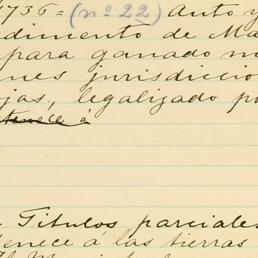 1736 = (nº 22) Auto y
dimiento de Ma
para ganado m
nes jurisdiccio
jas, legalizado po
tenece á
- Titulos parciales
tenece á las tierras